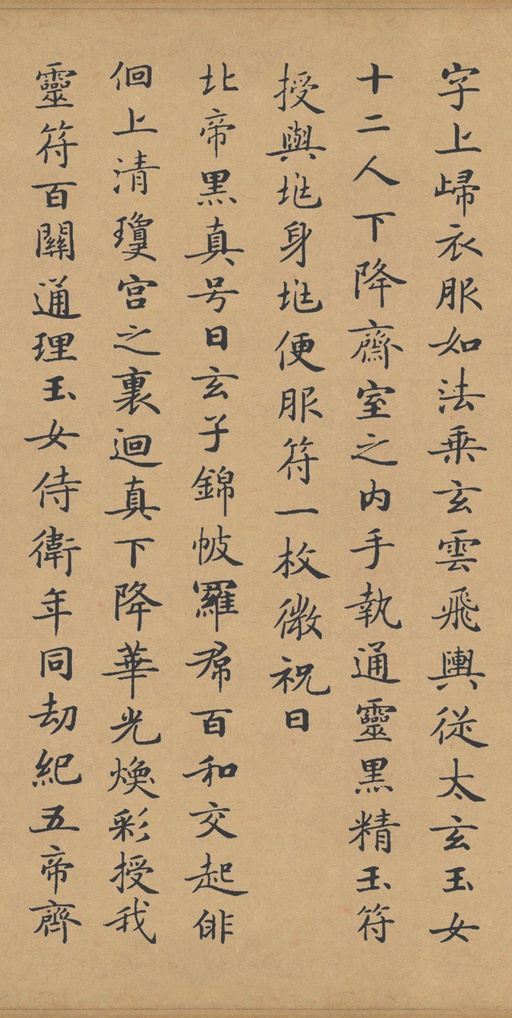 字上㱕衣服如法乘玄雲飛輿從太玄玉女
十二人下降齋室之内手執通靈黑精玉符
授與兆身兆便服符一枚微祝曰
北帝黑真号曰玄子錦帔羅帬百和交起俳
佪上清瓊宮之裏迴真下降華光煥彩授我
靈符百關通理玉女侍衛年同劫紀五帝齊